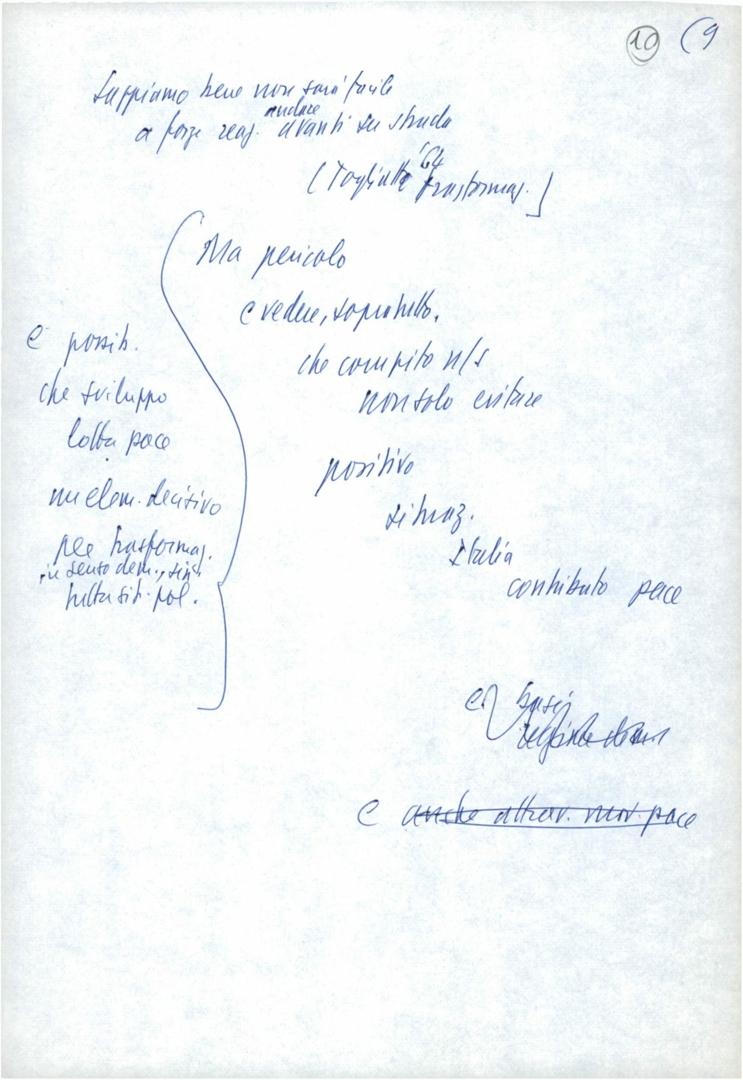 10 (9
Sappiamo bene non sarà facile
a forze reaz. andare avanti su strada
(Togliatti '64 trasformaz.]
Ma pericolo
e vedere, soprattutto,
che compito n/s
non solo evitare
positivo
situaz.
Italia
contributo pace
e possib.
che sviluppo
lotta pace
sia elem. decisivo
per trasformaz.
in senso dem., sin.
tutta sit. pol.
e
e anche attrav. mov. pace